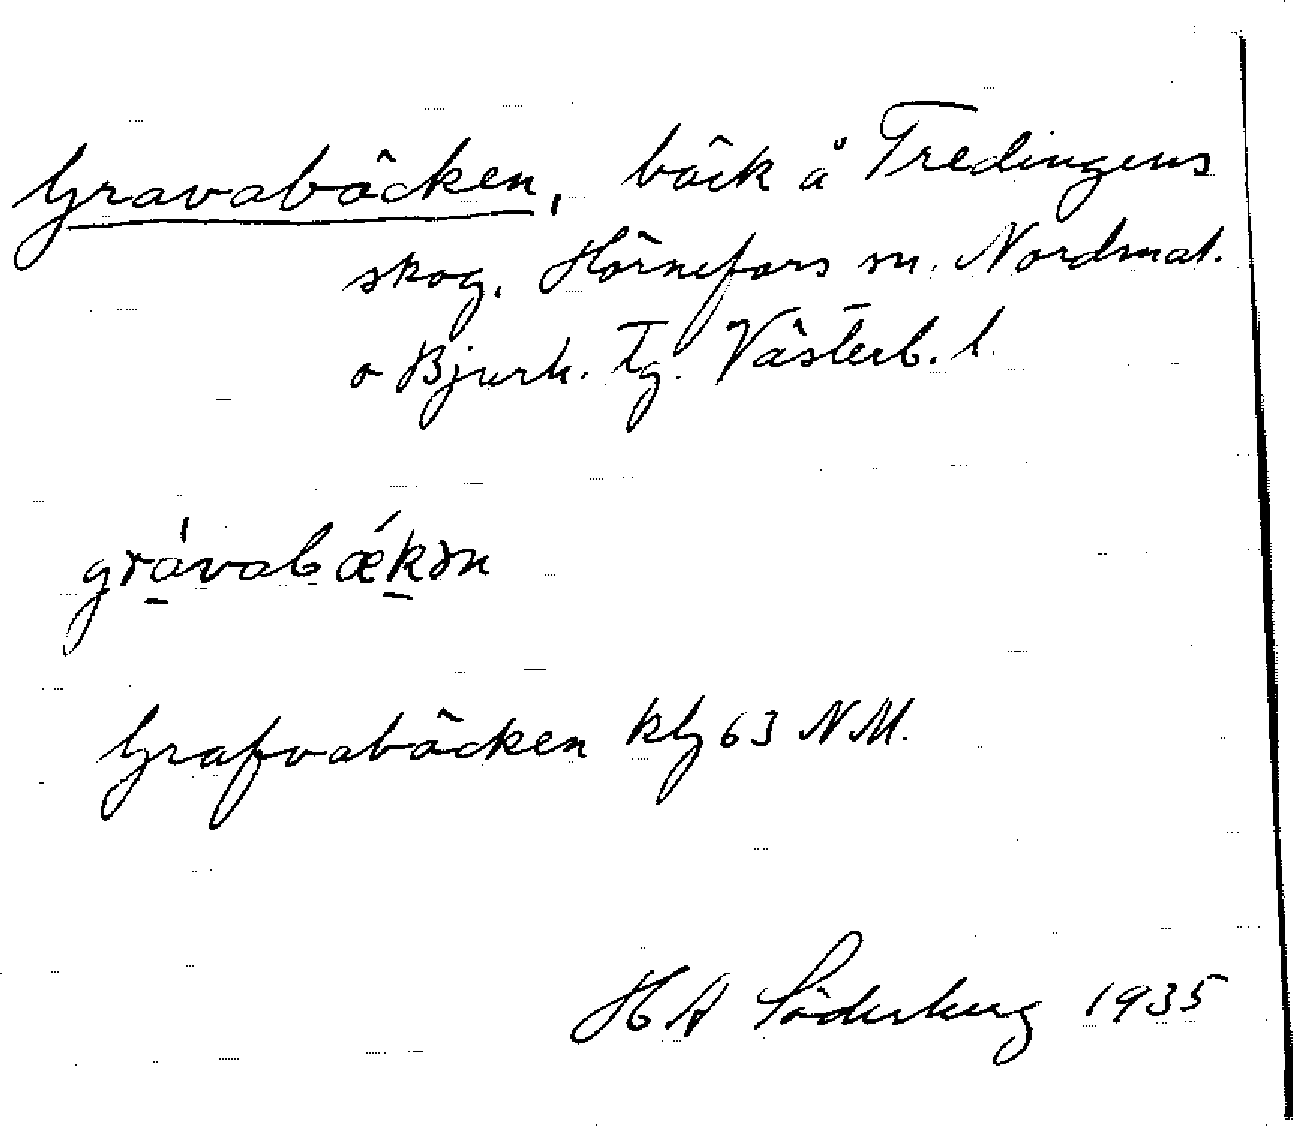 Gravabäcken, bäck å Tredingens
skog. Hörnefors sn. Nordmal.
o Bjurh. tg. Västerb. l.
grávabǽkən
Grafvabäcken klg 63 NM.
H A Söderberg 1935